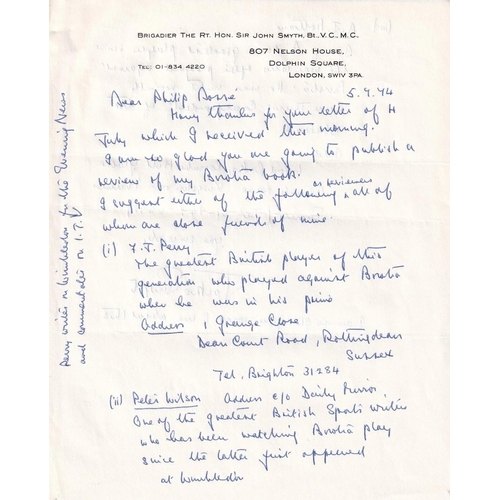 BRIGADIER THE RT. HON. SIR JOHN SMYTH, Bt., V.C., M.C.
807 NELSON HOUSE,
DOLPHIN SQUARE,
LONDON, SW1V 3PA.
TEL: 01-834 4220
5.7.74
Dear Philip Dossé
Many thanks for your letter of 4
July which I received this morning.
I am so glad you are going to publish a
review of my Borotra book.
as reviewers
I suggest either of the following, all of
whom are close friends of mine.
(i) F.J. Perry
The greatest British player of this
generation who played against Borotra
when he was in his prime
Address 1 Grange Close
Dean Court Road, Rottingdean
Sussex
Tel. Brighton 31284
(ii) Peter Wilson Address c/o Daily Mirror
One of the greatest British Sports writers
who has been watching Borotra play
since the latter first appeared
at Wimbledon
Perry writes on Wimbledon for the Evening News
and commentates on I.T.V.